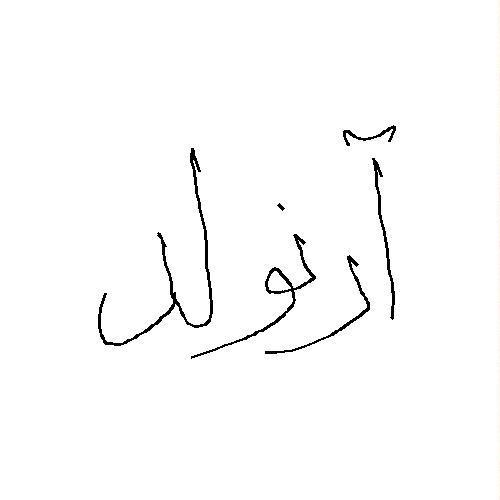 آرنولد